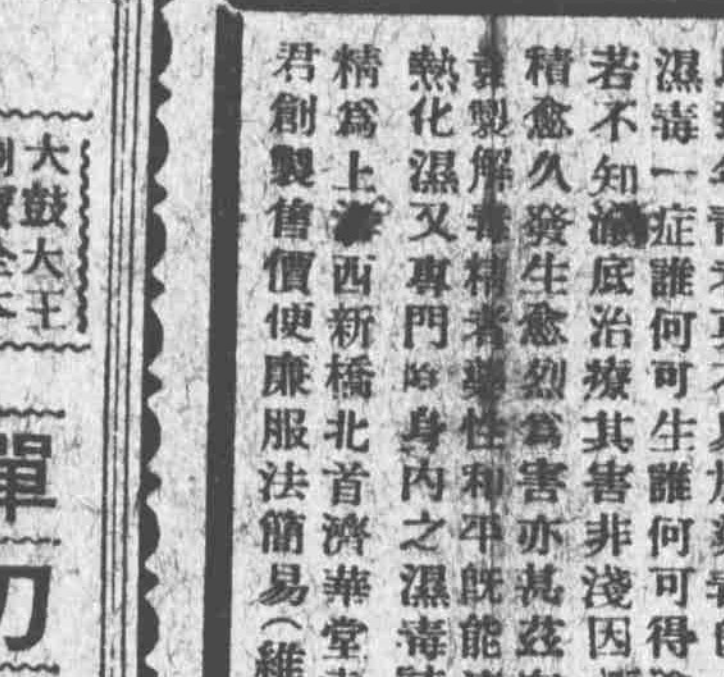 濕毒一症誰何可生誰何可得
若不知澈底治療其害非淺因
積愈久發生愈烈爲害亦甚茲
製解毒精者藥性和平既能
熱化濕又專門治身內之濕毒
精爲上海西新橋北首濟華堂
君創製售價便廉服法簡易（維
大鼓大王
單
刀